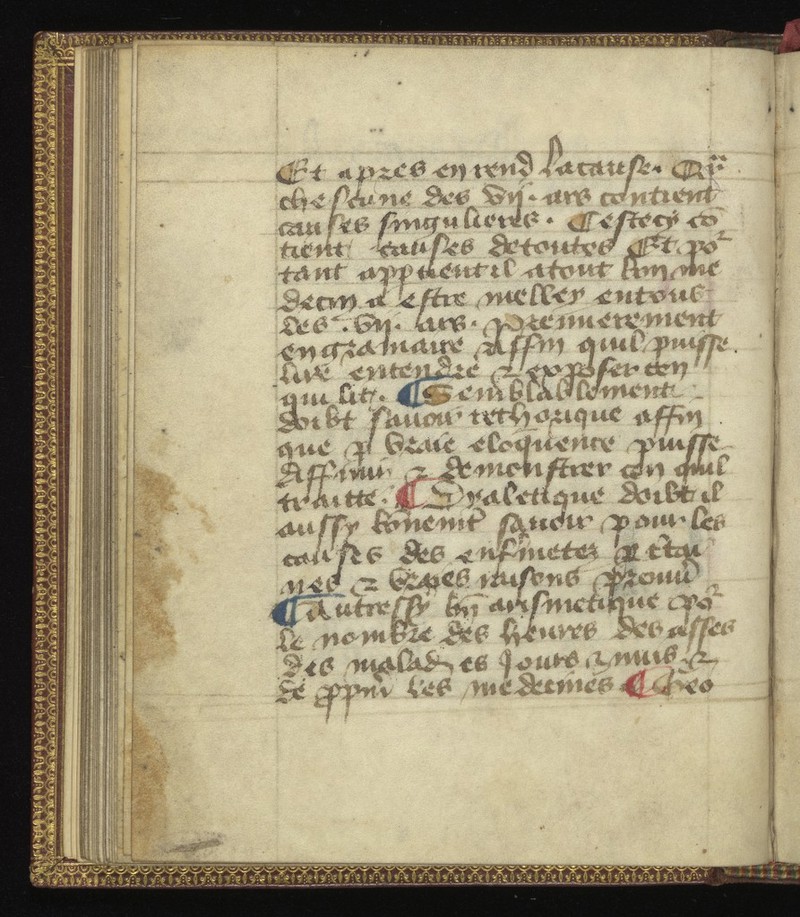 Et apres en rend la cause. Qr̃
chescune des vij. ars contient
causes singulieres. Cestecy cõ
tient causes de toutes Et poᷣ
tant appertient il a tout bon me
decin a estre melley en tous
les .vij. ars. Premierement
en gramaire affin quil puisse
lire entendre ⁊ exposer ceu
qui lit. ¶ Semblablement
doibt savoir rethorique affin
que p̱ vraie eloquence puisse
diffinir ⁊ demonstrer ceu quil
traitte. ¶ Dyaletique doibt il
aussy savoir pour les
causes des enfmetez p̱ c̃tai
nes ⁊ vraies raisons prouũ
¶ Autressy bñ arismetique poᷣ
le nombre des heures des asses
des malad es Jours ⁊ nuis. ⁊
de ꝓpñr les medecines ¶ Geo